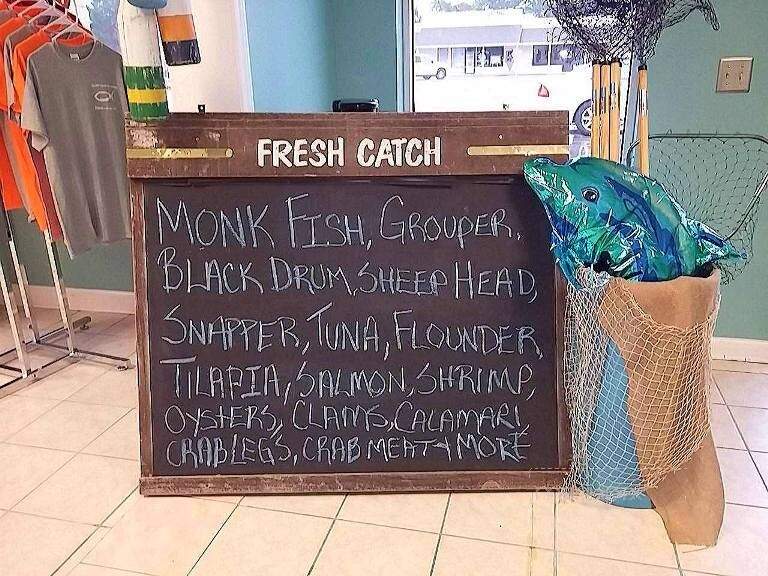 FRESH CATCH
MONK FISH, GROUPER,
BLACK DRUM, SHEEP HEAD,
SNAPPER, TUNA, FLOUNDER
TILAPIA, SALMON, SHRIMP,
OYSTERS, CLAMS, CALAMARI
CRAB LEGS, CRAB MEAT & MORE